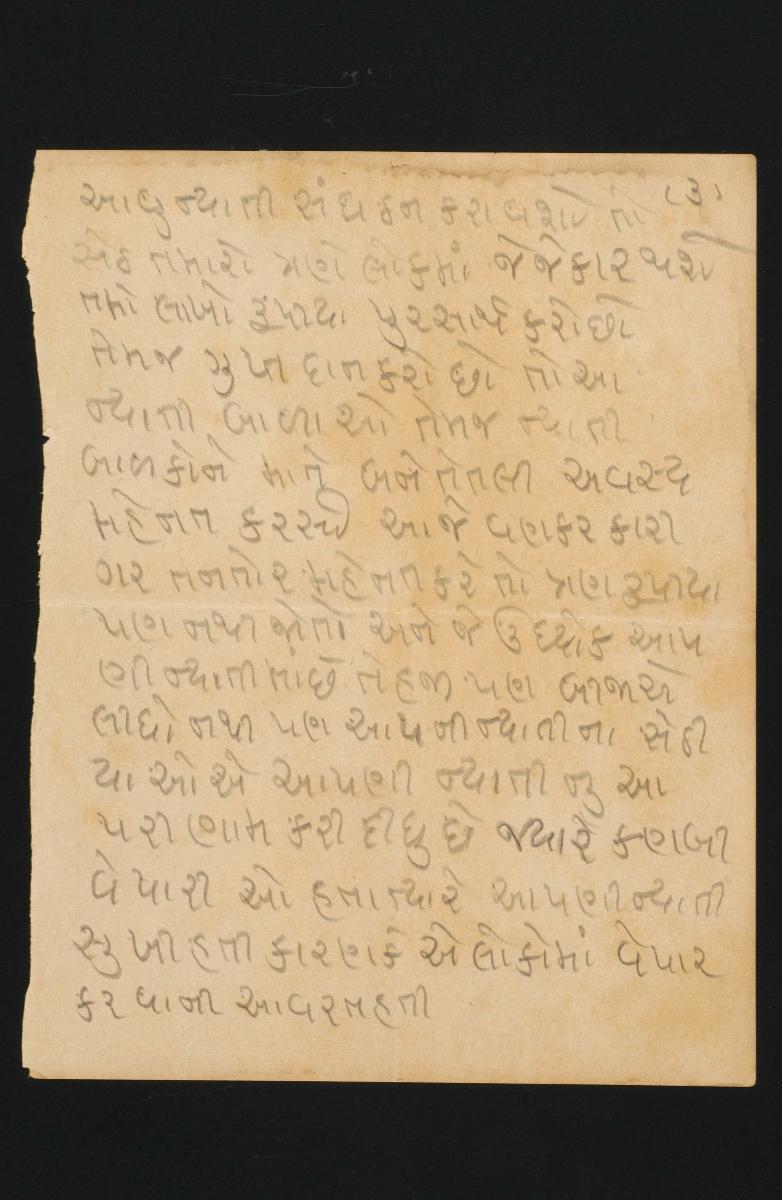 (૩)
આવુ ન્યાતી સંઘઠન કરાવશો તો
સેઠ તમારો ત્રણે લોકમાં જેજેકાર થશે
તમો લાખો રૂપાયા પુરસાર્થ કરોછો
તેમજ ગુપ્ત દાન કરો છો તો આ
ન્યાતી બાળાઓ તેમજ ન્યાતી
બાળકોને માટે બને તેતલી અવસ્ય
મહેનત કરસો આજે વણકર કારી
ગર તનતોર મહેનત કરે તો ત્રણ રૂપાયા
પણ નથી જોતો અને જે ઉદ્યોક આપ
ણી ન્યાતીમાંછે તે હજી પણ બીજાએ
લીધો નથી પણ આપની ન્યાતીના સેઠી
યાઓએ આપણી ન્યાતી નુ આ
પરીણામ કરી દીધુ છે જ્યારે કણબી
વેપારી ઓ હતા ત્યારે આપણી ન્યાતી
સુખી હતી કારણકે એ લોકોમાં વેપાર
કરવાની આવરત હતી